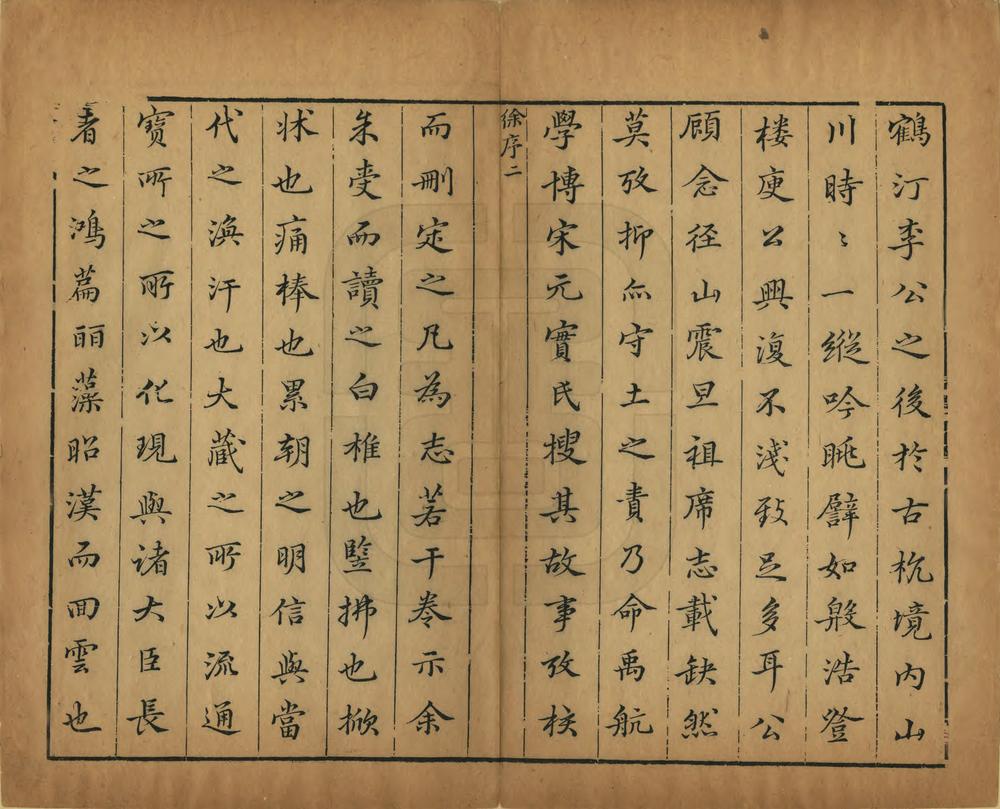 鶴汀李公之後於古杭境内山
川時〻一縱吟眺譬如殷浩登
楼庾公興復不淺致足多耳公
顧念径山震旦祖席志載缺然
莫攷抑亦守土之責乃命禹航
學博宋元實氏搜其故事攷核
徐序二
而刪定之凡為志若干卷示余
余受而讀之白椎也竪拂也掀
牀也痛棒也累朝之明信與當
代之渙汗也大藏之所以流通
寳所之所以化現與諸大臣長
者之鴻篇丽藻昭漢而回雲也